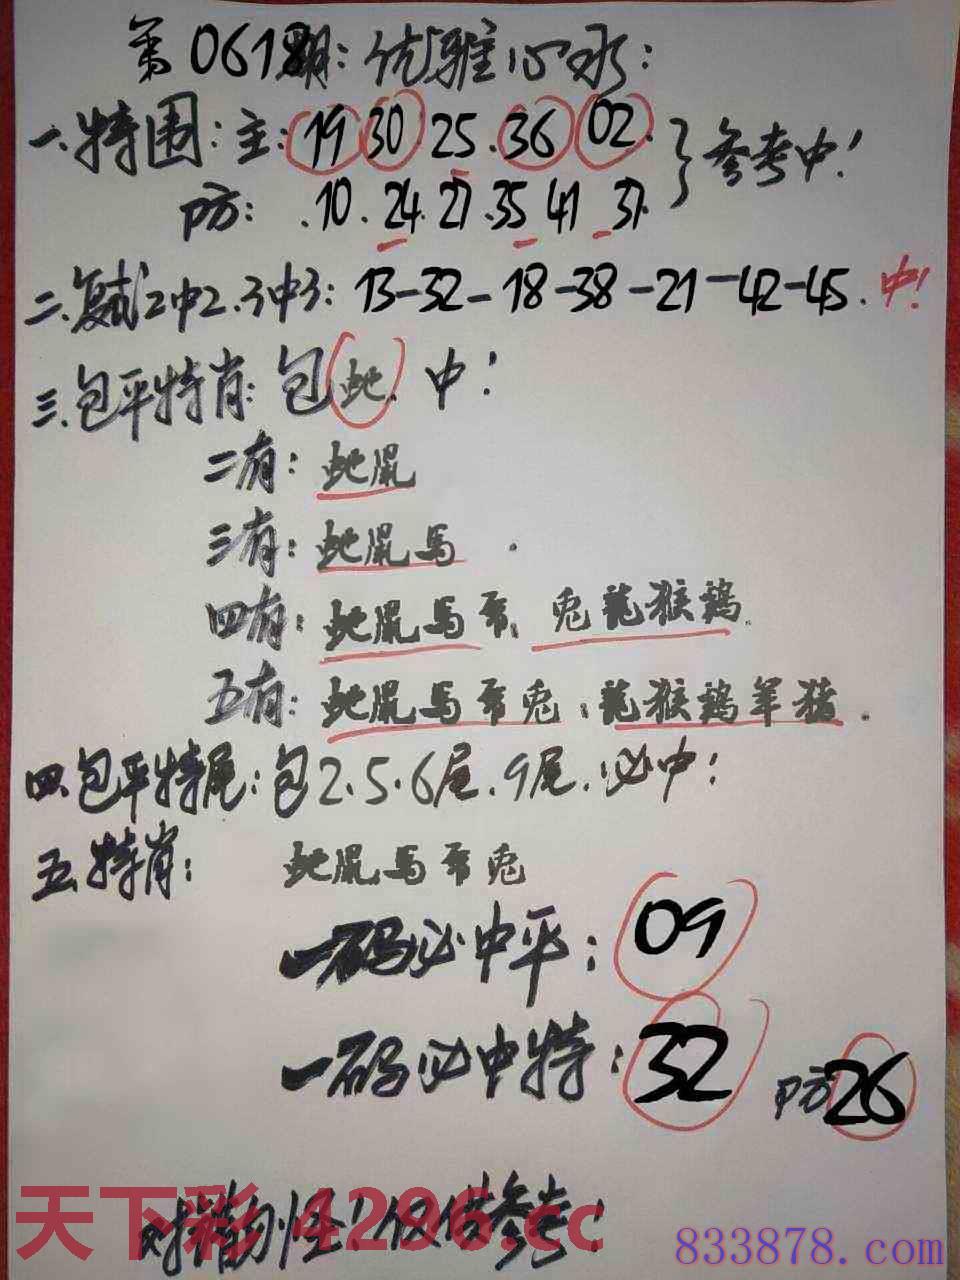 第0618期:优雅心水:
一.特围:主:19 30 25.36 02.
防:.10.24.27.35 41 37.
}参考中!
二.复试2中2.3中3:13-32-18-38-21-42-45.中!
三.包平特肖:包蛇.中!
二有:蛇鼠
三有:蛇鼠馬.
四有:蛇鼠馬 兔龍猴鷄.
五有:蛇鼠馬 兔:龍猴鷄羊猪.
四.包平特尾:包2.5.6尾.9尾.必中!
五.特肖:蛇鼠馬 兔
一码必中平:09
一码必中特:32 防26
对错勿怪!仅供参考!
天下彩 4296.cc
833878.com